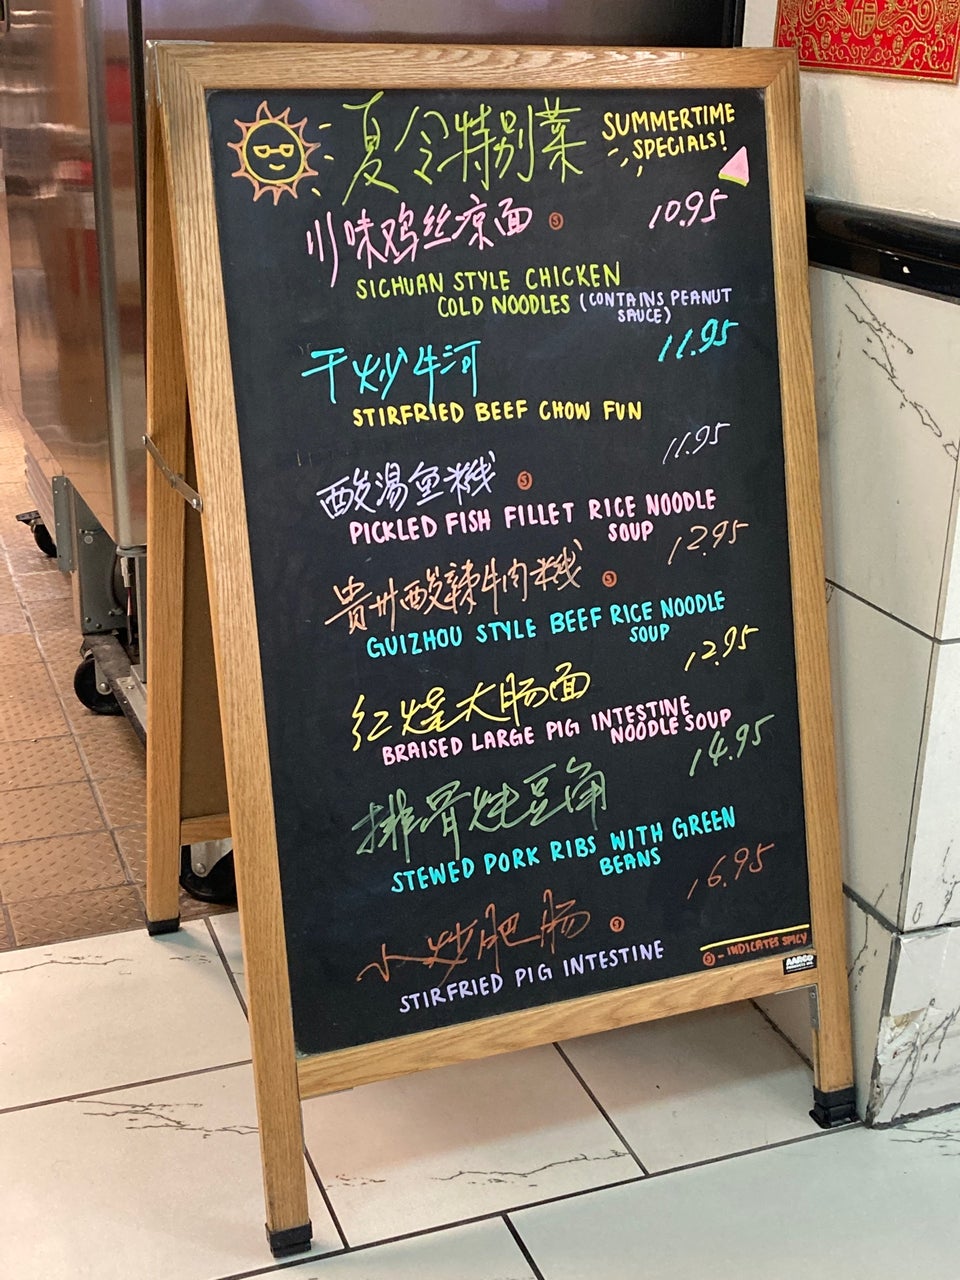 夏令特别菜
SUMMERTIME
SPECIALS!
川味鸡丝凉面 Ⓢ 10.95
SICHUAN STYLE CHICKEN
COLD NOODLES (CONTAINS PEANUT
SAUCE)
干炒牛河 11.95
STIRFRIED BEEF CHOW FUN
酸汤鱼米线 Ⓢ 11.95
PICKLED FISH FILLET RICE NOODLE
SOUP
贵州酸辣牛肉米线 Ⓢ 12.95
GUIZHOU STYLE BEEF RICE NOODLE
SOUP
红烧大肠面 12.95
BRAISED LARGE PIG INTESTINE
NOODLE SOUP
排骨炖豆角 14.95
STEWED PORK RIBS WITH GREEN
BEANS
小炒肥肠 Ⓢ 16.95
STIRFRIED PIG INTESTINE
Ⓢ - INDICATES SPICY
AARCO